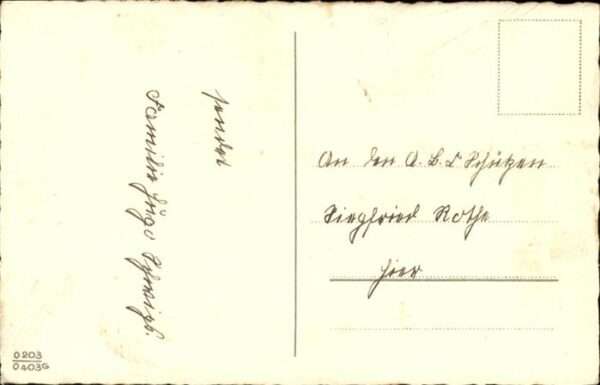 sendet
Familie Hugo
An den A. B. C Schützen
Siegfried Rothe
hier
0203
0403G